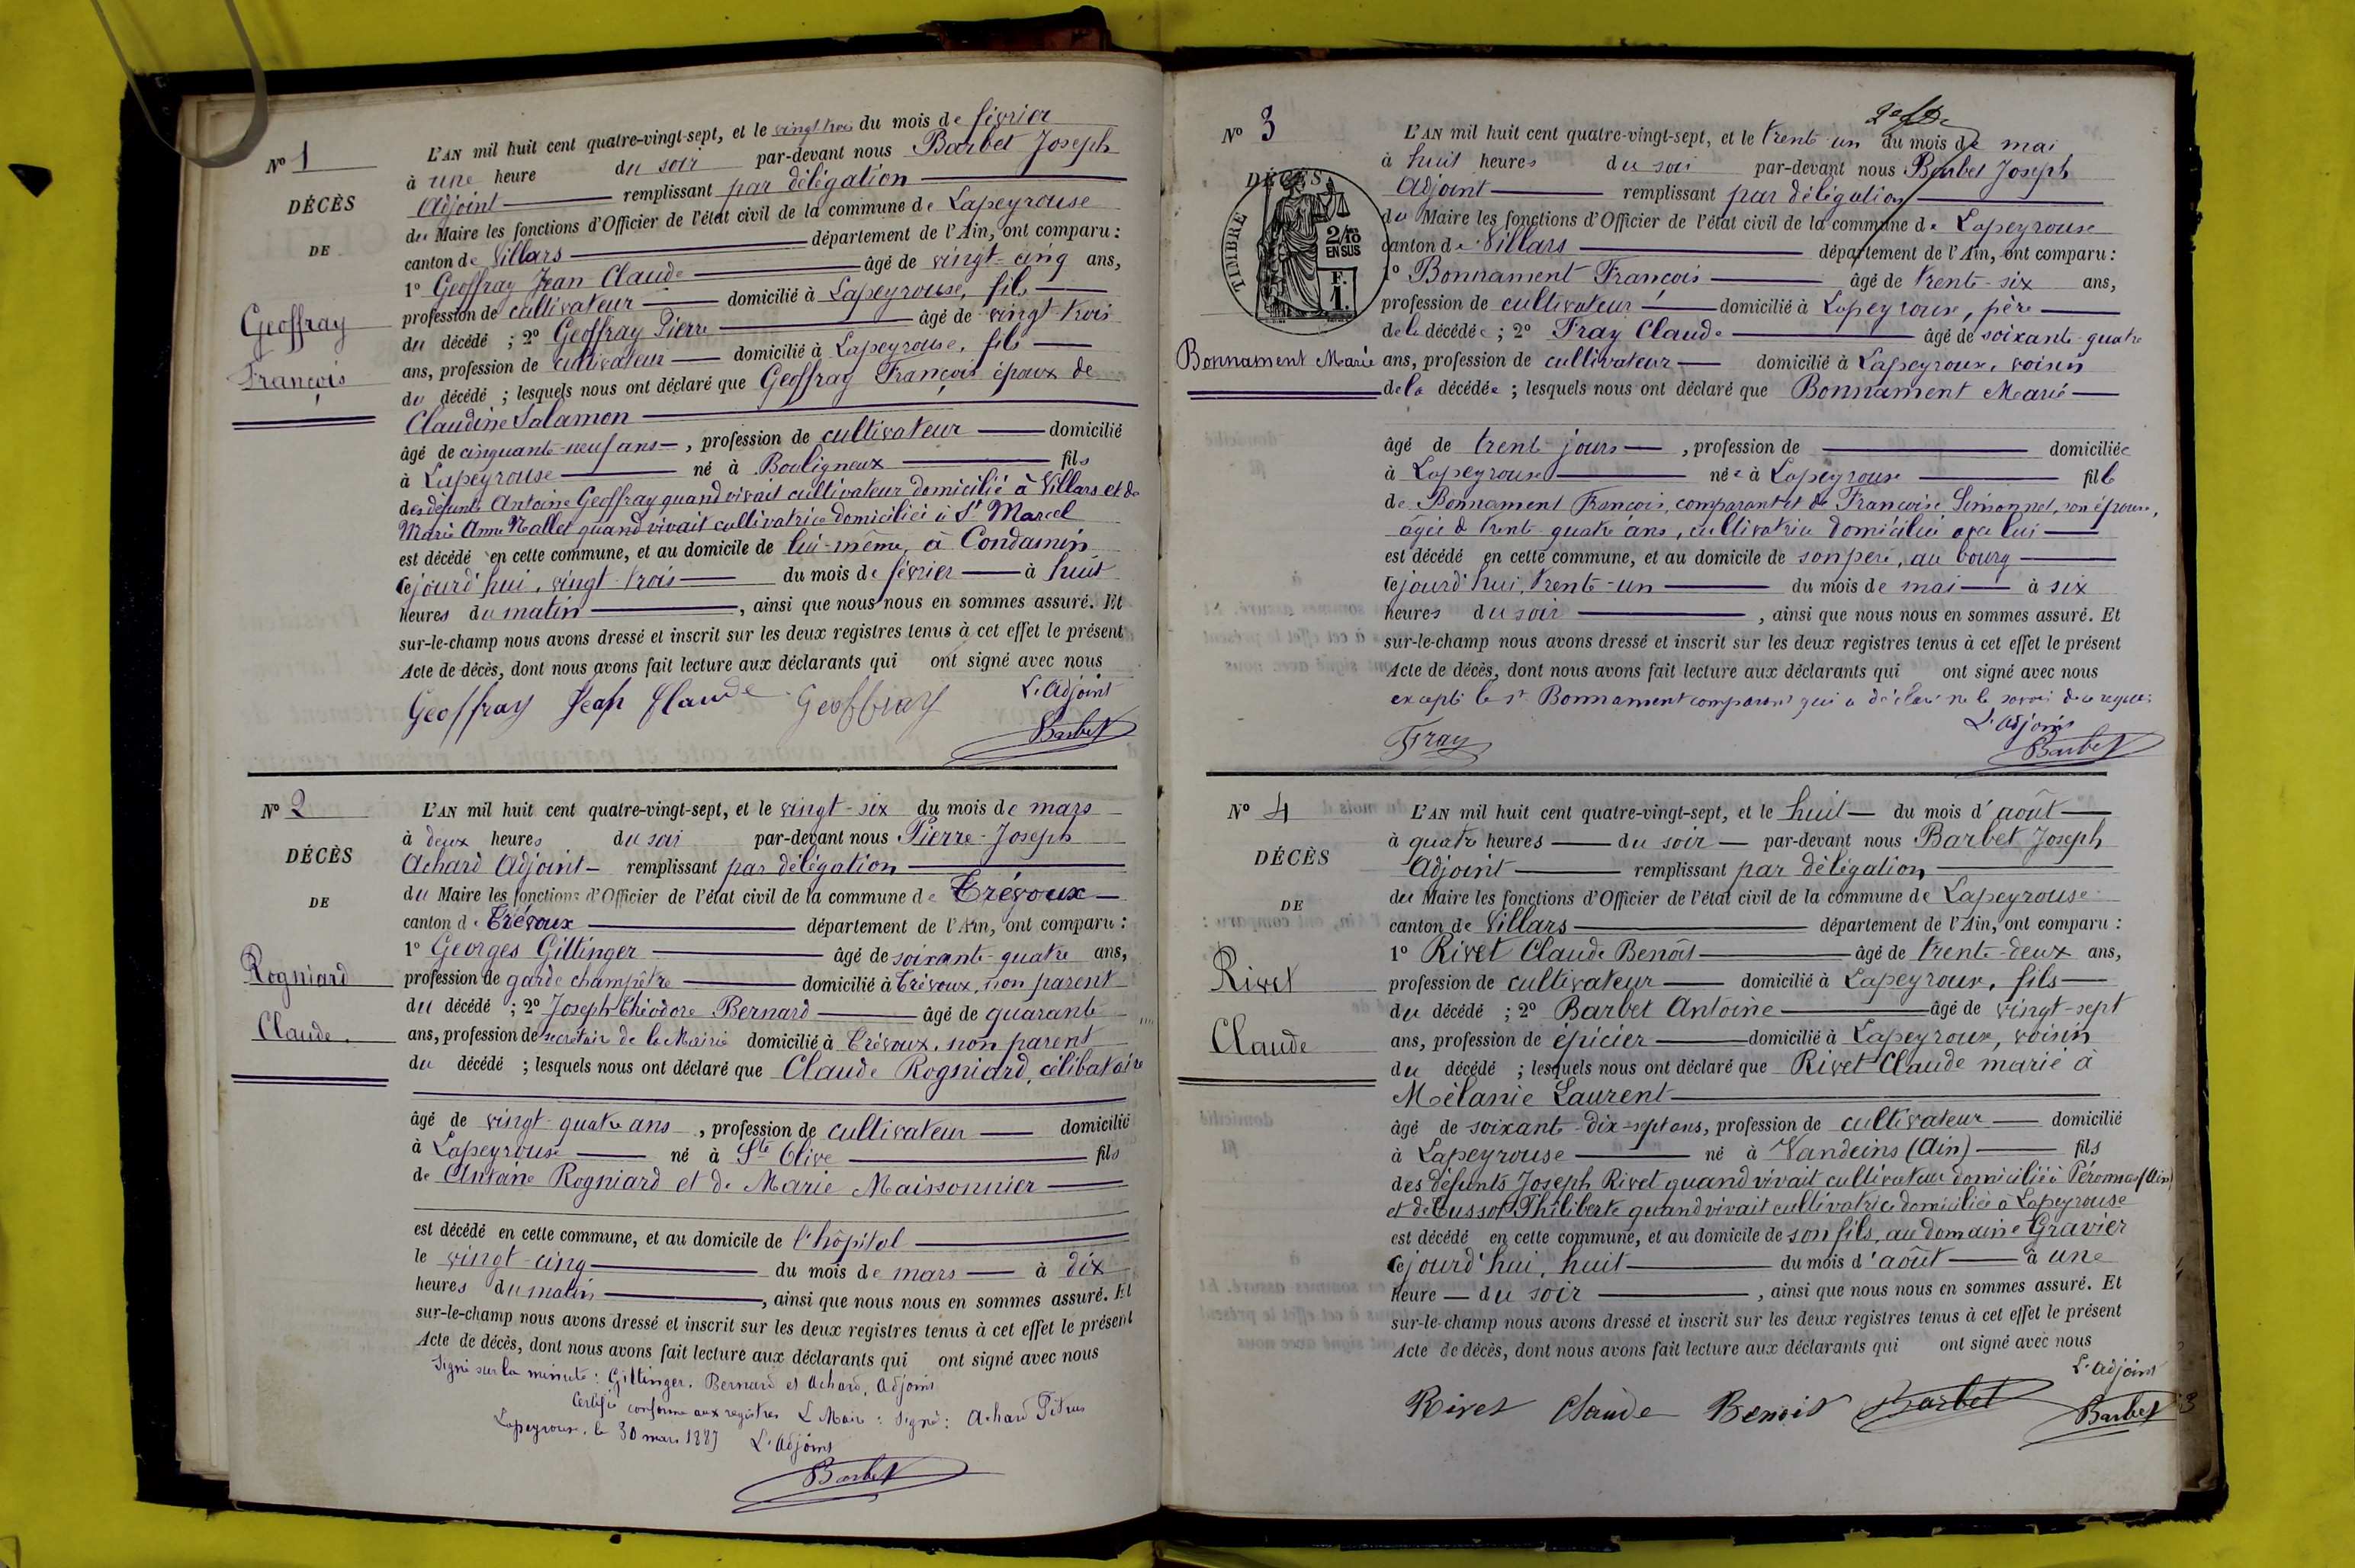 N° 1
DÉCÈS
DE
Geoffray
François
L'AN mil huit cent quatre-vingt-sept, et le vingt trois du mois de février
à une heure du soir par-devant nous Barbet Joseph
Adjoint remplissant par délégation
du Maire les fonctions d'Officier de l'état civil de la commune de Lapeyrouse
canton de Villars département de l'Ain, ont comparu :
1° Geoffray Jean Claude âgé de vingt-cinq ans,
profession de cultivateur domicilié à Lapeyrouse, fils
du décédé ; 2° Geoffray Pierre âgé de vingt-trois
ans, profession de cultivateur domicilié à Lapeyrouse, fils
du décédé ; lesquels nous ont déclaré que Geoffray François époux de
Claudine Salamon
âgé de cinquante-neuf ans, profession de cultivateur domicilié
à Lapeyrouse né à Bouligneux fils
des défunts Antoine Geoffray quand vivait cultivateur domicilié à Villars et de
Marie Anne Nallet quand vivait cultivatrice domiciliée à St Marcel
est décédé en cette commune, et au domicile de lui-même, à Condamin
cejourd'hui, vingt-trois du mois de février à huit
heures du matin, ainsi que nous nous en sommes assuré. Et
sur-le-champ nous avons dressé et inscrit sur les deux registres tenus à cet effet le présent
Acte de décès, dont nous avons fait lecture aux déclarants qui ont signé avec nous
L'Adjoint
Geoffray Jean Claude Geoffray Barbet
N° 2
DÉCÈS
DE
Rogniard
Claude.
L'AN mil huit cent quatre-vingt-sept, et le vingt-six du mois de mars
à deux heures du soir par-devant nous Pierre-Joseph
Achard Adjoint remplissant par délégation
du Maire les fonctions d'Officier de l'état civil de la commune de Trévoux
canton de Trévoux département de l'Ain, ont comparu :
1° Georges Gittinger âgé de soixante-quatre ans,
profession de garde champêtre domicilié à Trévoux, non parent
du décédé ; 2° Joseph Théodore Bernard âgé de quarante
ans, profession de secrétaire de la Mairie domicilié à Trévoux, non parent
du décédé ; lesquels nous ont déclaré que Claude Rogniard, célibataire
âgé de vingt-quatre ans, profession de cultivateur domicilié
à Lapeyrouse né à Ste Olive fils
de Antoine Rogniard et de Marie Maissonnier
est décédé en cette commune, et au domicile de l'hôpital
le vingt-cinq du mois de mars à dix
heures du matin, ainsi que nous nous en sommes assuré. Et
sur-le-champ nous avons dressé et inscrit sur les deux registres tenus à cet effet le présent
Acte de décès, dont nous avons fait lecture aux déclarants qui ont signé avec nous
Signé sur la minute : Gittinger. Bernard et Achard, Adjoint
Certifié conforme aux registres Le Maire : Signé : Achard
Lapeyrouse, le 30 mars 1887 L'Adjoint
Barbet
N° 3
DÉCÈS
TIMBRE
2/10 EN SUS
F. 1.
Bonnament Marie
L'AN mil huit cent quatre-vingt-sept, et le trente-un du mois de mai
à huit heures du soir par-devant nous Barbet Joseph
Adjoint remplissant par délégation
du Maire les fonctions d'Officier de l'état civil de la commune de Lapeyrouse
canton de Villars département de l'Ain, ont comparu :
1° Bonnament François âgé de trente-six ans,
profession de cultivateur domicilié à Lapeyrouse, père
de la décédée ; 2° Fray Claude âgé de soixante-quatre
ans, profession de cultivateur domicilié à Lapeyrouse, voisin
de la décédée ; lesquels nous ont déclaré que Bonnament Marie
âgé de trente jours, profession de domiciliée
à Lapeyrouse née à Lapeyrouse fille
de Bonnament François, comparant et de Françoise Simonnet, son épouse,
âgée de trente-quatre ans, cultivatrice domiciliée avec lui
est décédé en cette commune, et au domicile de son père, au bourg
cejourd'hui, trente-un du mois de mai à six
heures du soir, ainsi que nous nous en sommes assuré. Et
sur-le-champ nous avons dressé et inscrit sur les deux registres tenus à cet effet le présent
Acte de décès, dont nous avons fait lecture aux déclarants qui ont signé avec nous
excepté le sr Bonnament comparant qui a déclaré ne le savoir de ce requis
L'Adjoint
Fray Barbet
N° 4
DÉCÈS
DE
Rivet
Claude
L'AN mil huit cent quatre-vingt-sept, et le huit du mois d'août
à quatre heures du soir par-devant nous Barbet Joseph
Adjoint remplissant par délégation
du Maire les fonctions d'Officier de l'état civil de la commune de Lapeyrouse
canton de Villars département de l'Ain, ont comparu :
1° Rivet Claude Benoît âgé de trente-deux ans,
profession de cultivateur domicilié à Lapeyrouse, fils
du décédé ; 2° Barbet Antoine âgé de vingt-sept
ans, profession de épicier domicilié à Lapeyrouse, voisin
du décédé ; lesquels nous ont déclaré que Rivet Claude marié à
Mélanie Laurent
âgé de soixante-dix-sept ans, profession de cultivateur domicilié
à Lapeyrouse né à Vandeins (Ain) fils
des défunts Joseph Rivet quand vivait cultivateur domicilié à Péronnas (Ain)
et de Cussot Philiberte quand vivait cultivatrice domiciliée à Lapeyrouse
est décédé en cette commune, et au domicile de son fils, au domaine Gravier
cejourd'hui, huit du mois d'août à une
heure du soir, ainsi que nous nous en sommes assuré. Et
sur-le-champ nous avons dressé et inscrit sur les deux registres tenus à cet effet le présent
Acte de décès, dont nous avons fait lecture aux déclarants qui ont signé avec nous
L'Adjoint
Rivet Claude Benoit Barbet Barbet
3